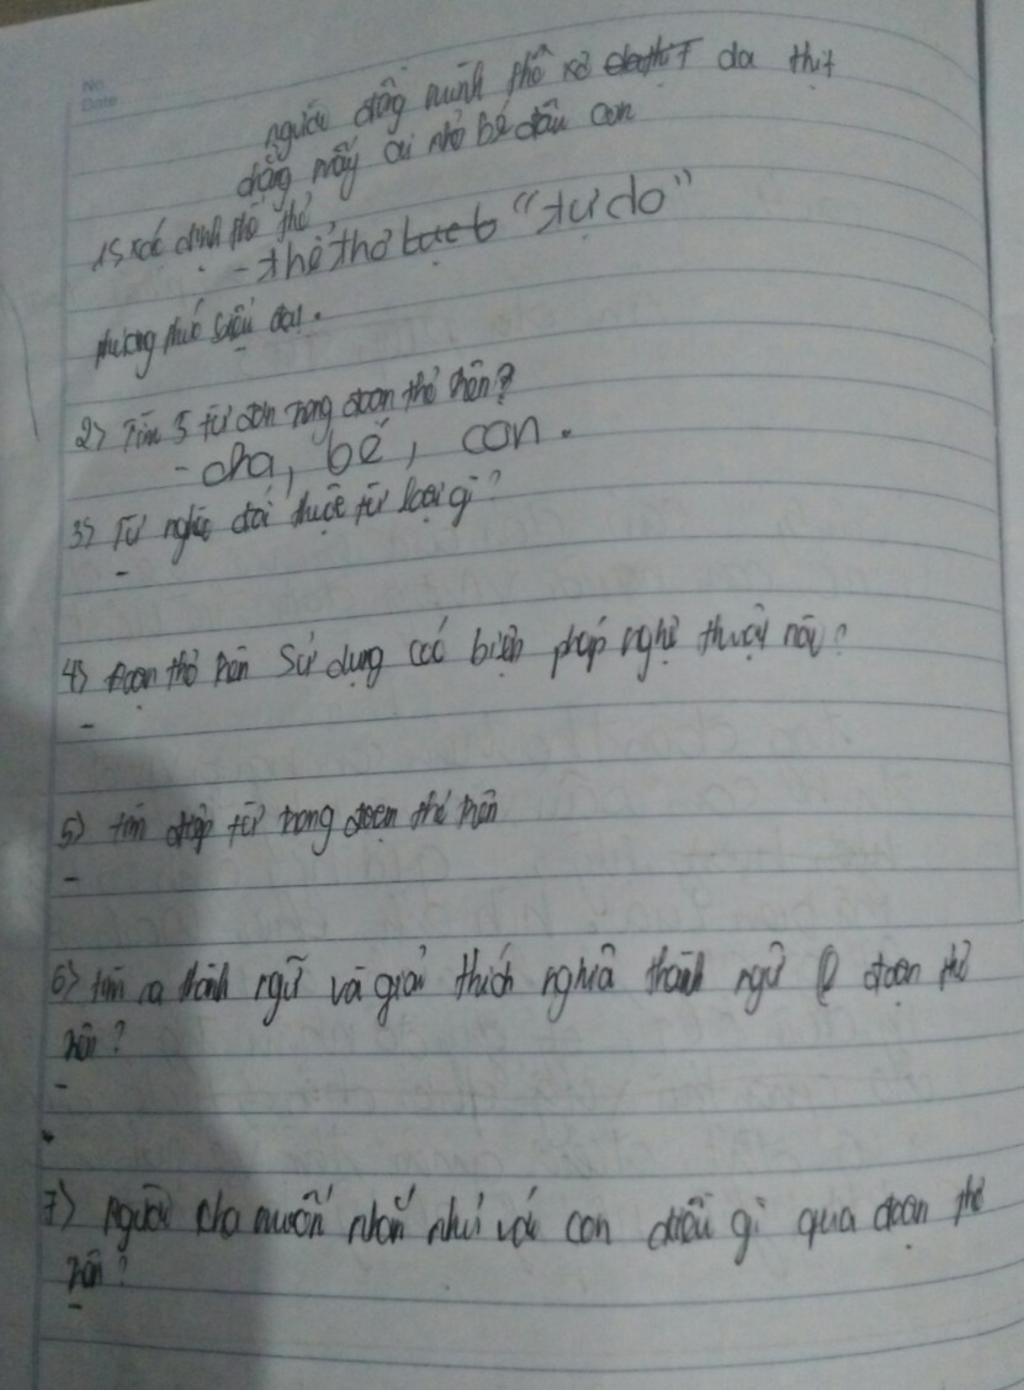 No.
Date
người đồng mình thô sơ da thịt
chẳng mấy ai nhỏ bé đâu con
1) xác định thể thơ
- thể thơ "tự do"
phương thức biểu đạt.
2) Tìm 5 từ đơn trong đoạn thơ trên?
- cha, bé, con.
3) Từ nghèo đói thuộc từ loại gì?
-
4) Đoạn thơ trên sử dụng các biện pháp nghệ thuật nào?
-
5) tìm điệp từ trong đoạn thơ trên
-
6) tìm ra thành ngữ và giải thích nghĩa thành ngữ ở đoạn thơ
trên?
-
7) Người cha muốn nhắn nhủ với con điều gì qua đoạn thơ
trên?
-